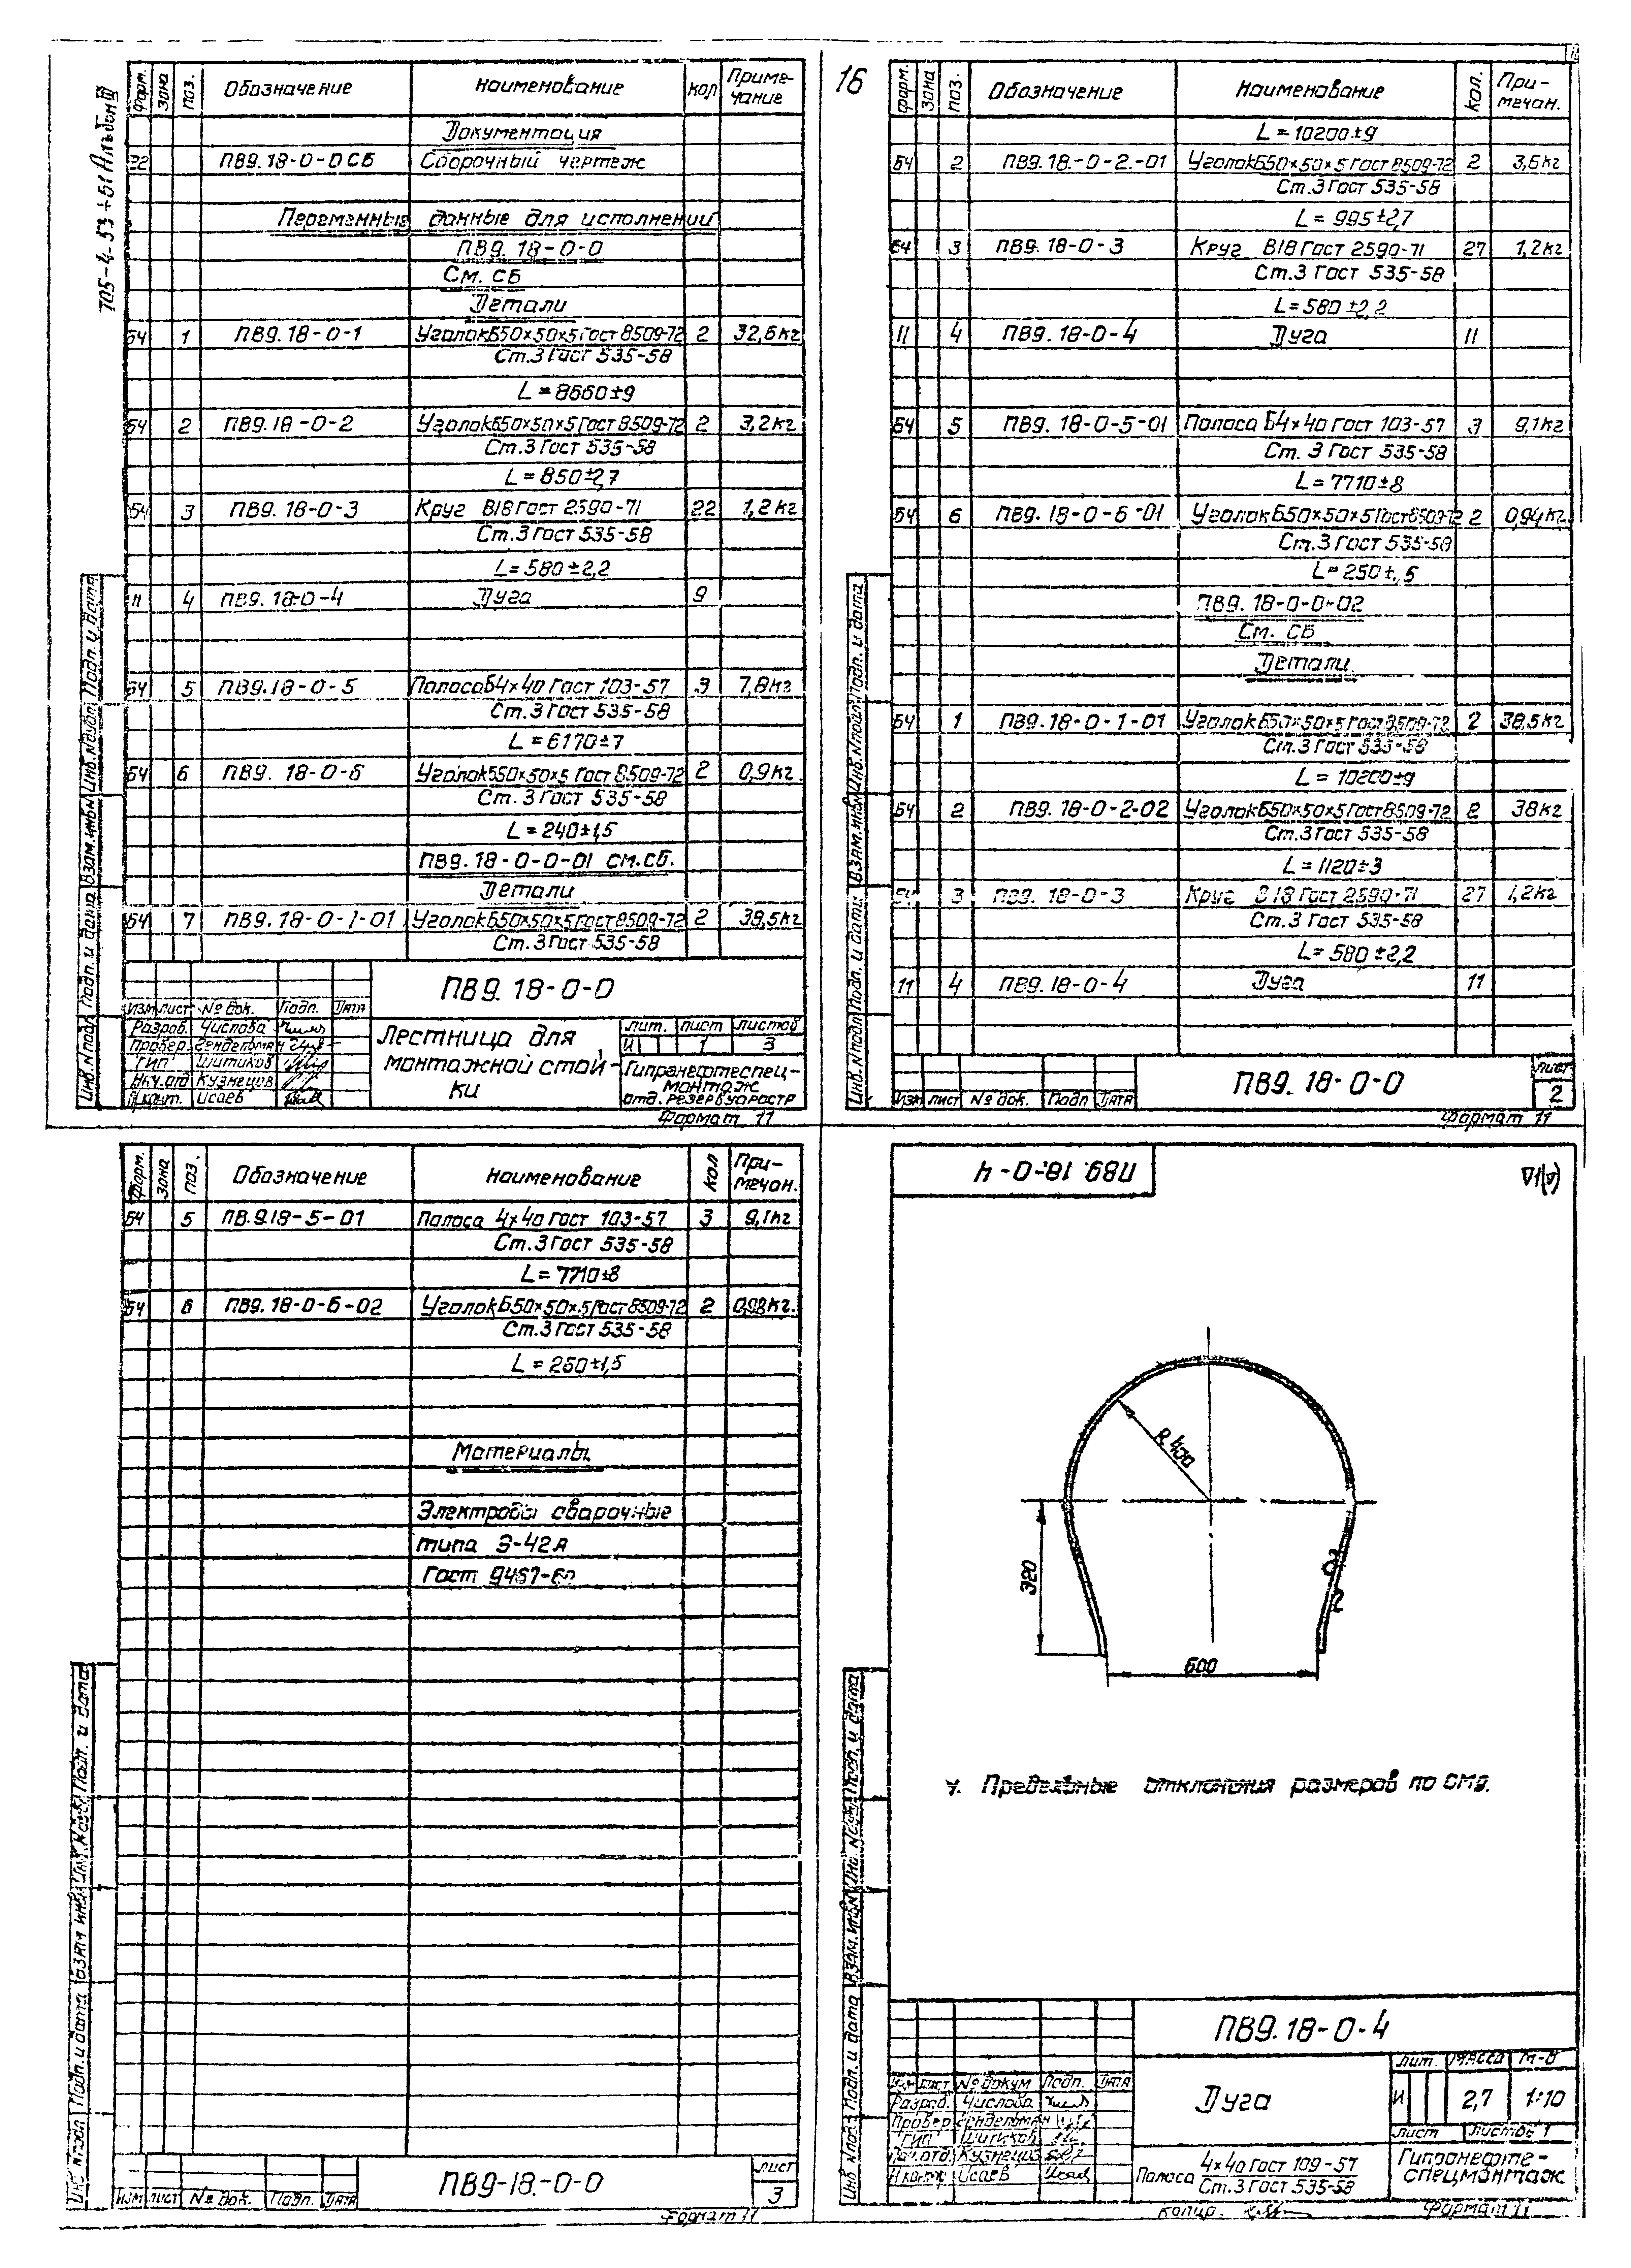 705-4-53÷61 Альбом III
Форм. Зона Поз. Обозначение Наименование Кол Примечание
Документация
22 ПВ9.18-0-0СБ Сборочный чертеж
Переменные данные для исполнений
ПВ9.18-0-0
См. СБ
Детали
БЧ 1 ПВ9.18-0-1 Уголок Б50×50×5 Гост 8509-72 2 32,6кг
Ст.3 Гост 535-58
L=8660±9
БЧ 2 ПВ9.18-0-2 Уголок Б50×50×5 Гост 8509-72 2 3,2кг
Ст.3 Гост 535-58
L=850±2,7
БЧ 3 ПВ9.18-0-3 Круг В18 Гост 2590-71 22 1,2кг
Ст.3 Гост 535-58
L=580±2,2
11 4 ПВ9.18-0-4 Дуга 9
БЧ 5 ПВ9.18-0-5 Полоса Б4×40 Гост 103-57 3 7,8кг
Ст.3 Гост 535-58
L=6170±7
БЧ 6 ПВ9.18-0-6 Уголок Б50×50×5 Гост 8509-72 2 0,9кг.
Ст.3 Гост 535-58
L=240±1,5
ПВ9.18-0-0-01 см.сб.
Детали
БЧ 7 ПВ9.18-0-1-01 Уголок Б50×50×5 Гост 8509-72 2 38,5кг
Ст.3 Гост 535-58
ПВ9.18-0-0
Изм Лист № док. Подп. Дата
Разраб. Числова
Провер. Гендельман
ГИП Шитиков
Нач.отд Кузнецов
Н.конт. Исаев
Лестница для
монтажной стой-
ки
Лит. Лист Листов
И 1 3
Гипранефтеспец-
монтаж
отд. резервуаростр
Формат 11
Инв.№подл Подп. и дата Взам.инв.№ Инв.№дубл Подп. и дата
16
Форм. Зона Поз. Обозначение Наименование Кол. Примечан.
L=10200±9
БЧ 2 ПВ9.18-0-2-01 Уголок Б50×50×5 Гост 8509-72 2 3,6кг
Ст.3 Гост 535-58
L=995±2,7
БЧ 3 ПВ9.18-0-3 Круг В18 Гост 2590-71 27 1,2кг
Ст.3 Гост 535-58
L=580±2,2
11 4 ПВ9.18-0-4 Дуга 11
БЧ 5 ПВ9.18-0-5-01 Полоса Б4×40 Гост 103-57 3 9,1кг
Ст.3 Гост 535-58
L=7710±8
БЧ 6 ПВ9.18-0-6-01 Уголок Б50×50×5 Гост 8509-72 2 0,94кг
Ст.3 Гост 535-58
L=250±,5
ПВ9.18-0-0-02
См. СБ
Детали
БЧ 1 ПВ9.18-0-1-01 Уголок Б50×50×5 Гост 8509-72 2 38,5кг
Ст.3 Гост 535-58
L=10200±9
БЧ 2 ПВ9.18-0-2-02 Уголок Б50×50×5 Гост 8509-72 2 38кг
Ст.3 Гост 535-58
L=1120±3
БЧ 3 ПВ9.18-0-3 Круг В18 Гост 2590-71 27 1,2кг
Ст.3 Гост 535-58
L=580±2,2
11 4 ПВ9.18-0-4 Дуга 11
Изм Лист № док. Подп Дата
ПВ9.18-0-0
Лист
2
Формат 11
Инв.№подл Подп. и дата Взам.инв.№ Подп. и дата
Форм. Зона Поз. Обозначение Наименование Кол Примечан.
БЧ 5 ПВ.9.18-5-01 Полоса 4×40 Гост 103-57 3 9,1кг
Ст.3 Гост 535-58
L=7710±8
БЧ 6 ПВ9.18-0-6-02 Уголок Б50×50×5 Гост 8509-72 2 0,98кг.
Ст.3 Гост 535-58
L=260±1,5
Материалы
Электроды сварочные
типа Э-42А
Гост 9467-60
Изм Лист № док. Подп. Дата
ПВ9-18-0-0
Лист
3
Формат 11
Подп. и дата Взам инв.№ Подп. и дата
ПВ9.18-0-4
R400
320
600
Предельные отклонения размеров по СМ9.
ПВ9.18-0-4
Изм Лист № докум Подп. Дата
Разраб. Числова
Провер Гендельман
ГИП Шитиков
Нач.отд. Кузнецов
Н.контр. Исаев
Дуга
Лит. Масса М-б
И 2,7 1:10
Лист Листов 1
Полоса 4×40 Гост 109-57
Ст.3 Гост 535-58
Гипронефте-
спецмонтаж
Копир. Формат 11
Подп. и дата Взам.инв.№ Подп. и дата